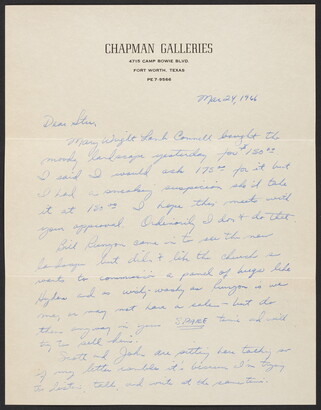 CHAPMAN GALLERIES
4715 CAMP BOWIE BLVD.
FORT WORTH, TEXAS
PE 7-9566
Mar 24, 1966
Dear Stu,
Mary Wright bought the
moody landscape yesterday for $150.00
I said I would ask 175.00 for it but
I had a sneaking suspicion she'd take
it at 150.00 I hope this meets with
your approval. Ordinarily I don't do that.
Bill came in to see the new
but didn't like the church &
wants to commission a panel of like
and as as is we
may or may not have a sale — but do
them anyway in your SPARE time and will
try to sell him.
and John are sitting here talking so
if my letter rambles it's because I'm trying
to listen, talk, and write at the same time.